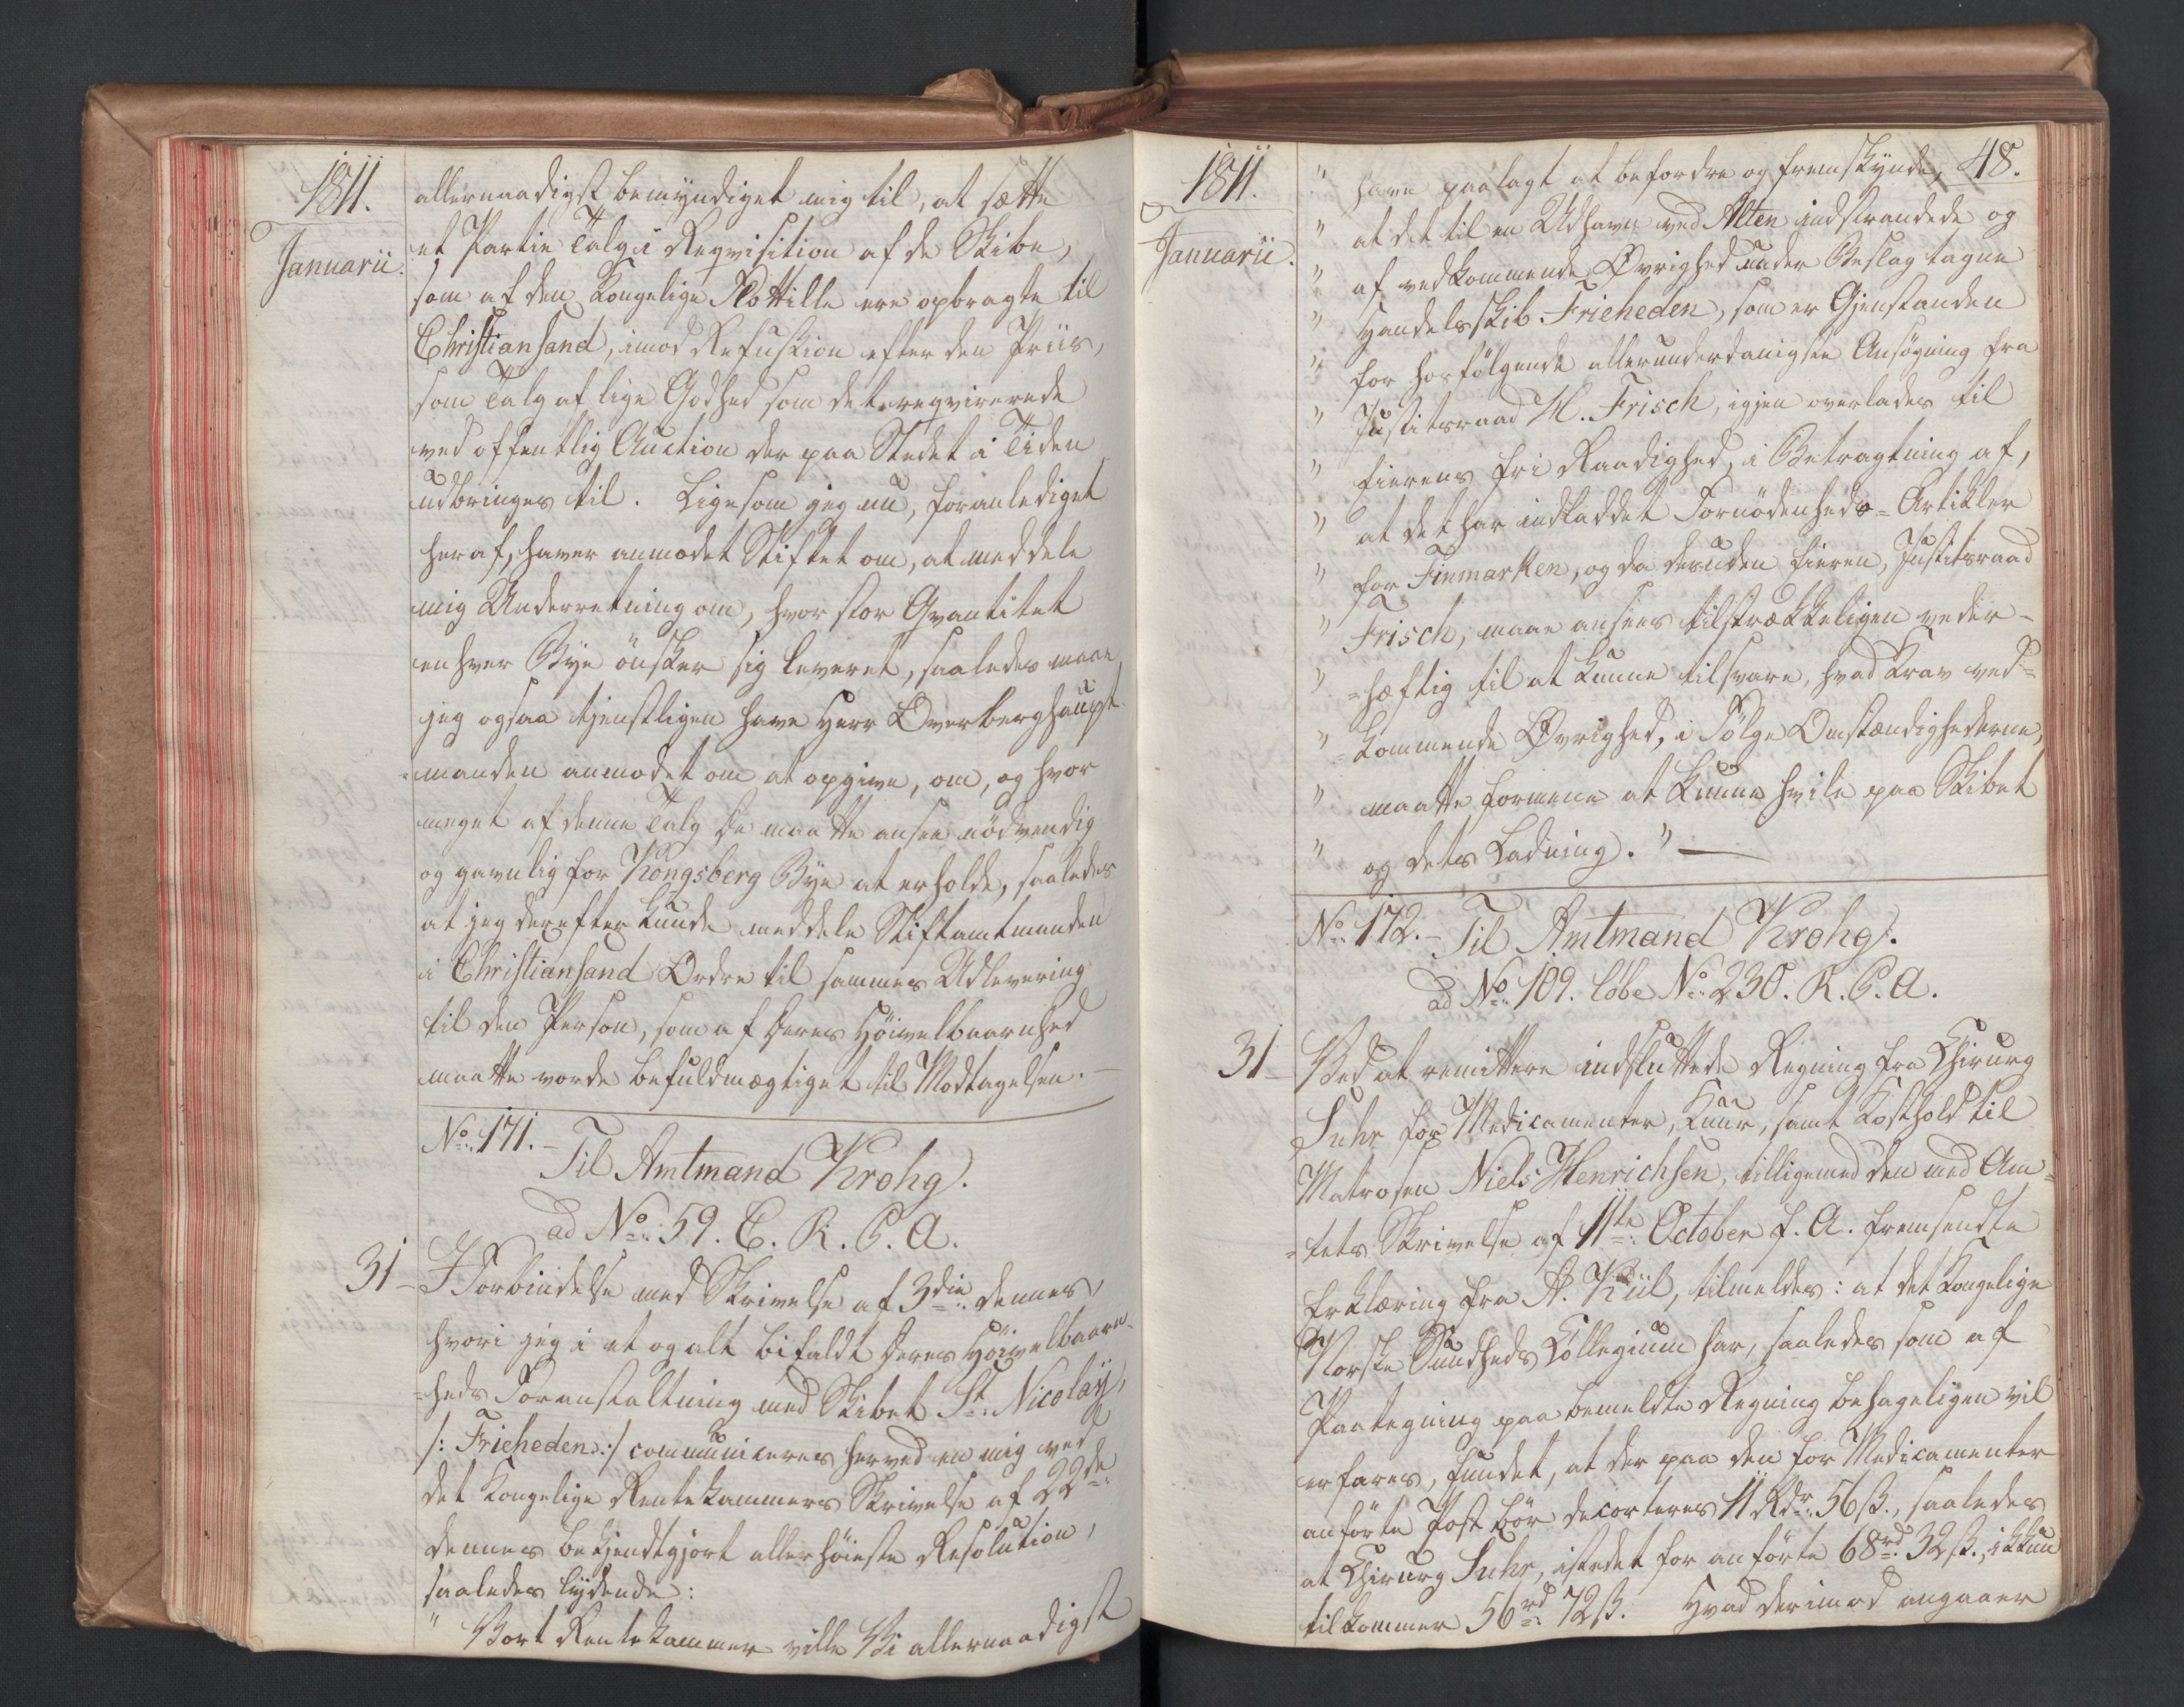 1811.
Januarii.
allernaadigst bemyndiget mig til, at sætte
et Partie Talg i Reqvisition af de Skibe,
som af den Kongelige Flottille ere opbragte til
Christiansand, imod Refusion efter den Priis,
som Talg af lige Godhed som det reqvirerede
ved offentlig Auction der paa Stedet i Tiden
udbringes til. Ligesom jeg nu, foranlediget
heraf, haver anmodet Stiftet om, at meddele
mig Underretning om, hvor stor Qvantitet
enhver Bye önsker sig leveret, saaledes maae
jeg ogsaa tjenstligen have Herr Overberghaupt-
=manden anmodet om at opgive, om, og hvor
meget af denne Talg De maatte ansee nödvendig
og gavnlig for Kongsberg Bye at erholde, saaledes
at jeg derefter kunde meddele Stiftamtmanden
i Christiansand Ordre til sammes Udlevering
til den Person, som af Deres Höivelbaarnhed
maatte vorde befuldmægtiget til Modtagelsen. —
No: 171. – Til Amtmand Krohg.
ad No: 59. C. R. C. A.
31 – I Forbindelse med Skrivelse af 3die: dennes,
hvori jeg i et og alt bifaldt Deres Höivelbaarn-
=heds Foranstaltning med Skibet St: Nicolay,
/: Frieheden :/ communiceres herved en mig ved
det Kongelige Rentekammers Skrivelse af 22de:
dennes bekjendtgjort allerhöieste Resolution,
saaledes lydende:
" Vort Rentekammer ville Vi allernaadigst
1811.
Januarii.
48.
" have paalagt at befordre og fremskynde,
" at det til en Udhavn ved Alten indstrandede og
" af vedkommende Øvrighed under Beslag tagne
" Handelsskib Frieheden, som er Gjenstanden
" for hosfölgende allerunderdanigste Ansögning fra
" Justitsraad H. Frisch, igjen overlades til
" Eierens fri Raadighed, i Betragtning af,
" at det har indladdet Fornödenheds=Artikler
" for Finmarken, og da desuden Eieren, Justitsraad
" Frisch, maae ansees tilstrækkeligen veder-
" =hæftig til at kunne tilsvare, hvad Krav ved=
" =kommende Øvrighed, i Fölge Omstændighederne,
" maatte formene at kunne hvile paa Skibet
" og dets Ladning." —
No: 172. – Til Amtmand Krohg.
ad No: 109. löbe No: 230. R. C. A.
31 – Ved at remittere indsluttede Regning fra Chirurg
Suhr for Medicamenter, Kuur, samt Kosthold til
Matrosen Niels Henrichsen, tilligemed den med Am=
=tets Skrivelse af 11te: October f. A. fremsendte
Erklæring fra A. Kiil, tilmeldes: at det Kongelige
Norske Sundheds Collegium har, saaledes som af
Paategning paa bemeldte Regning behageligen vil
erfares, fundet, at der paa den for Medicamenter
anförte Post bör decorteres 11 Rdr: 56 ß., saaledes
at Chirurg Suhr, istedet for anförte 68rd: 32 ß., ikkun
tilkommer 56rd: 72 ß. Hvad derimod angaaer